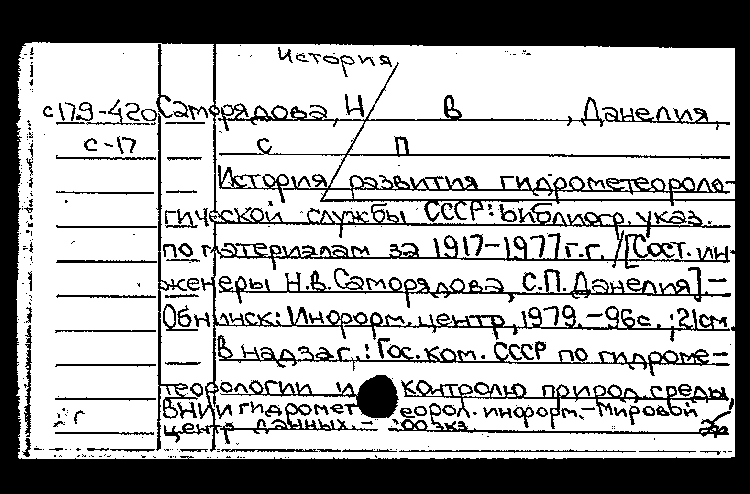 История
с179-420 Саморядова, Н В , Данелия,
с-17 С П
История развития гидрометеороло-
гической службы СССР: библиогр. указ.
по материалам за 1917-1977г.г. /[Сост. ин-
женеры Н.В.Саморядова, С.П.Данелия].-
Обнинск: Информ. центр, 1979.-96с. ; 21см.
В надзаг.: Гос. ком. СССР по гидроме-
теорологии и контролю природ. среды,
ВНИИ гидромет еорол. информ.-Мировой
центр данных. - 200экз